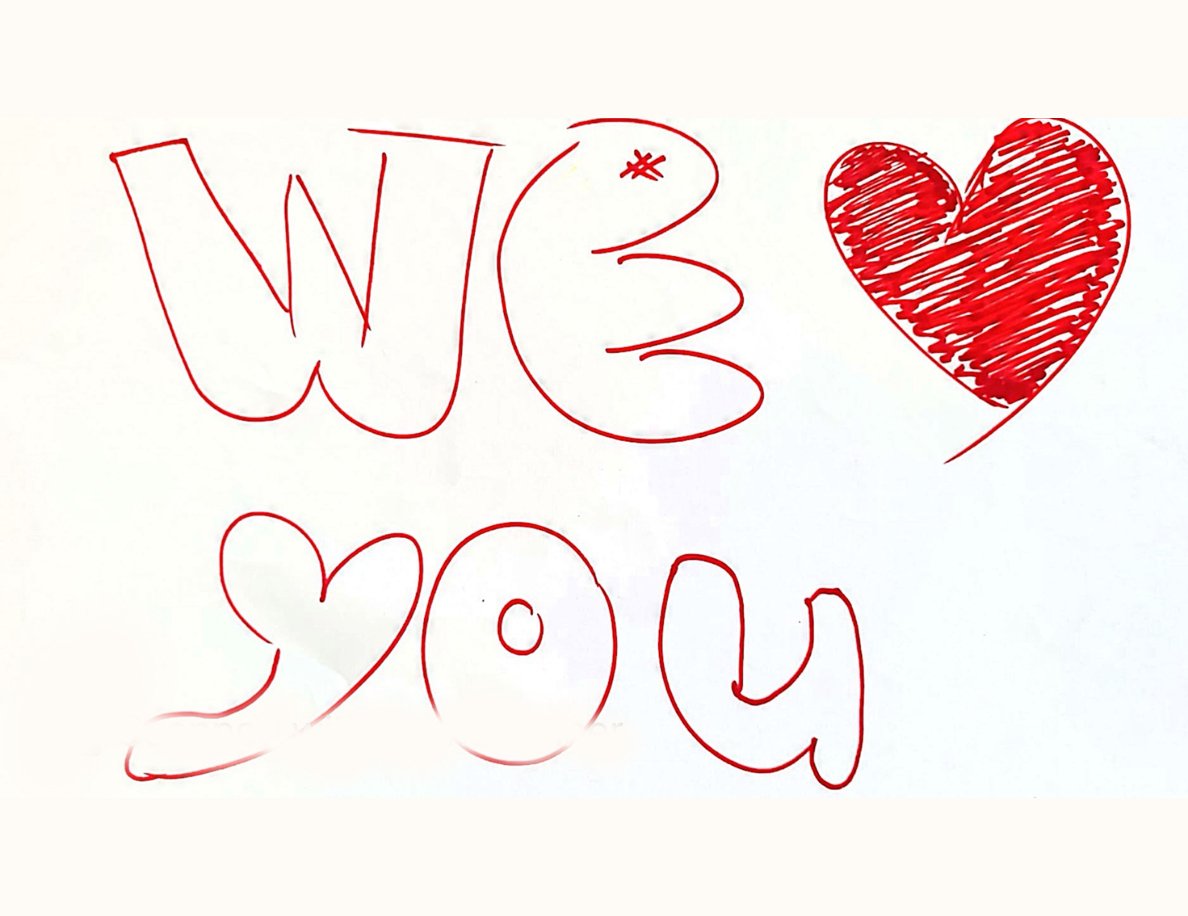 WE ❤
you